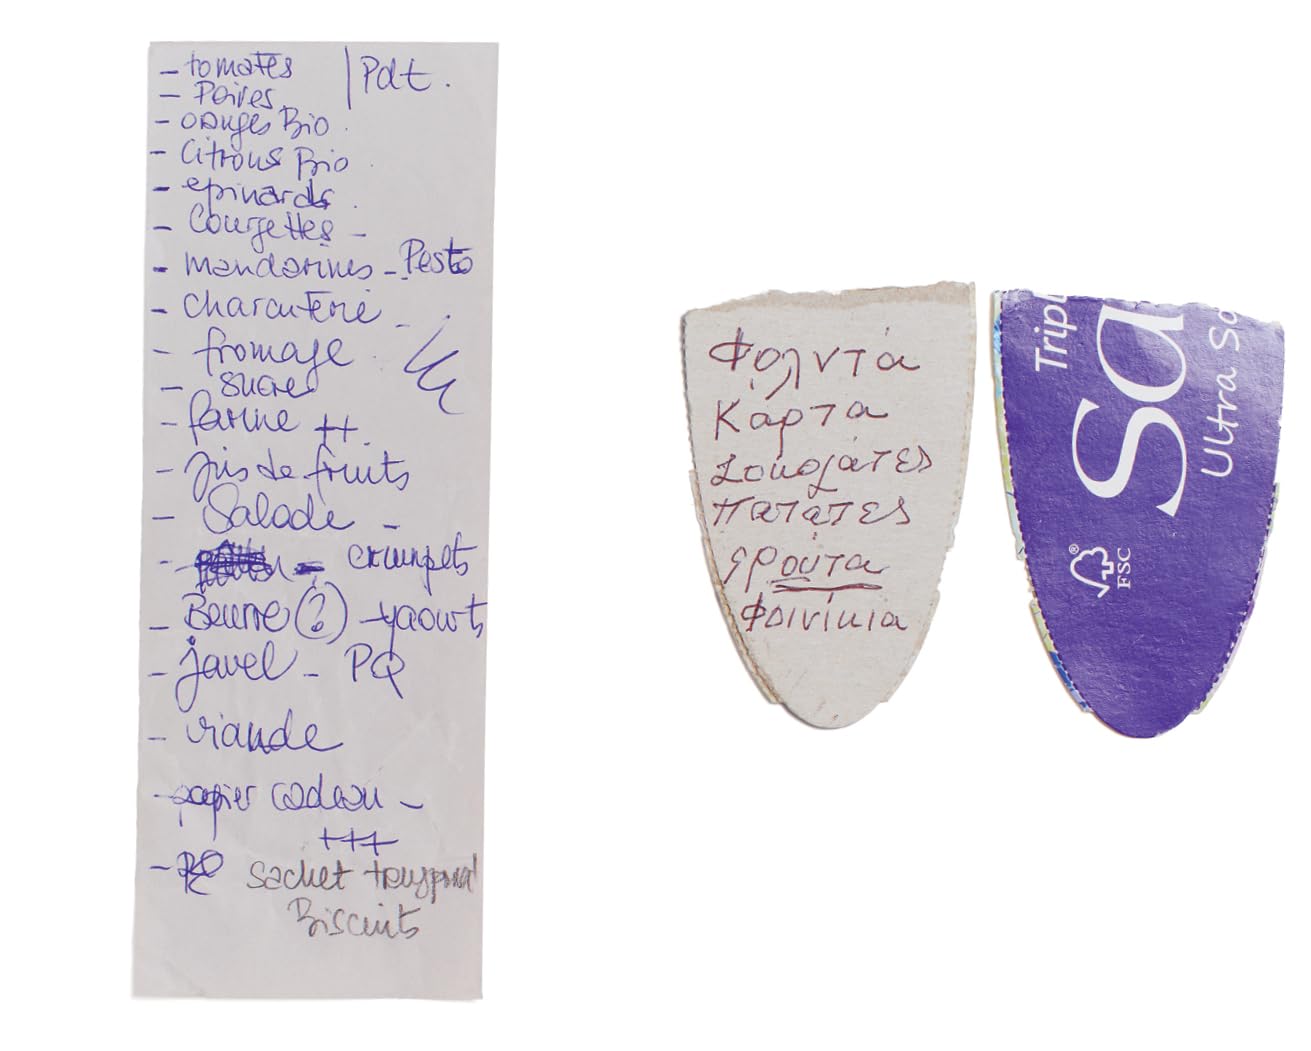 - tomates | Pdt.
- Poires
- oranges Bio.
- Citrons Bio
- epinards.
- Courgettes -
- mandarines - Pesto
- charcuterie -
- fromage.
- sucre
- farine ++.
- jus de fruits
- Salade -
- crumpets
- Beurre (?) - yaourts
- javel - PQ
- viande
- papier cadeau -
+++
- sachet
Biscuits
Φολντά
Κάρτα
Σοκολάτες
Πατάτες
φρούτα
Φοινίκια
Tripl
Sa
Ultra So
®
FSC